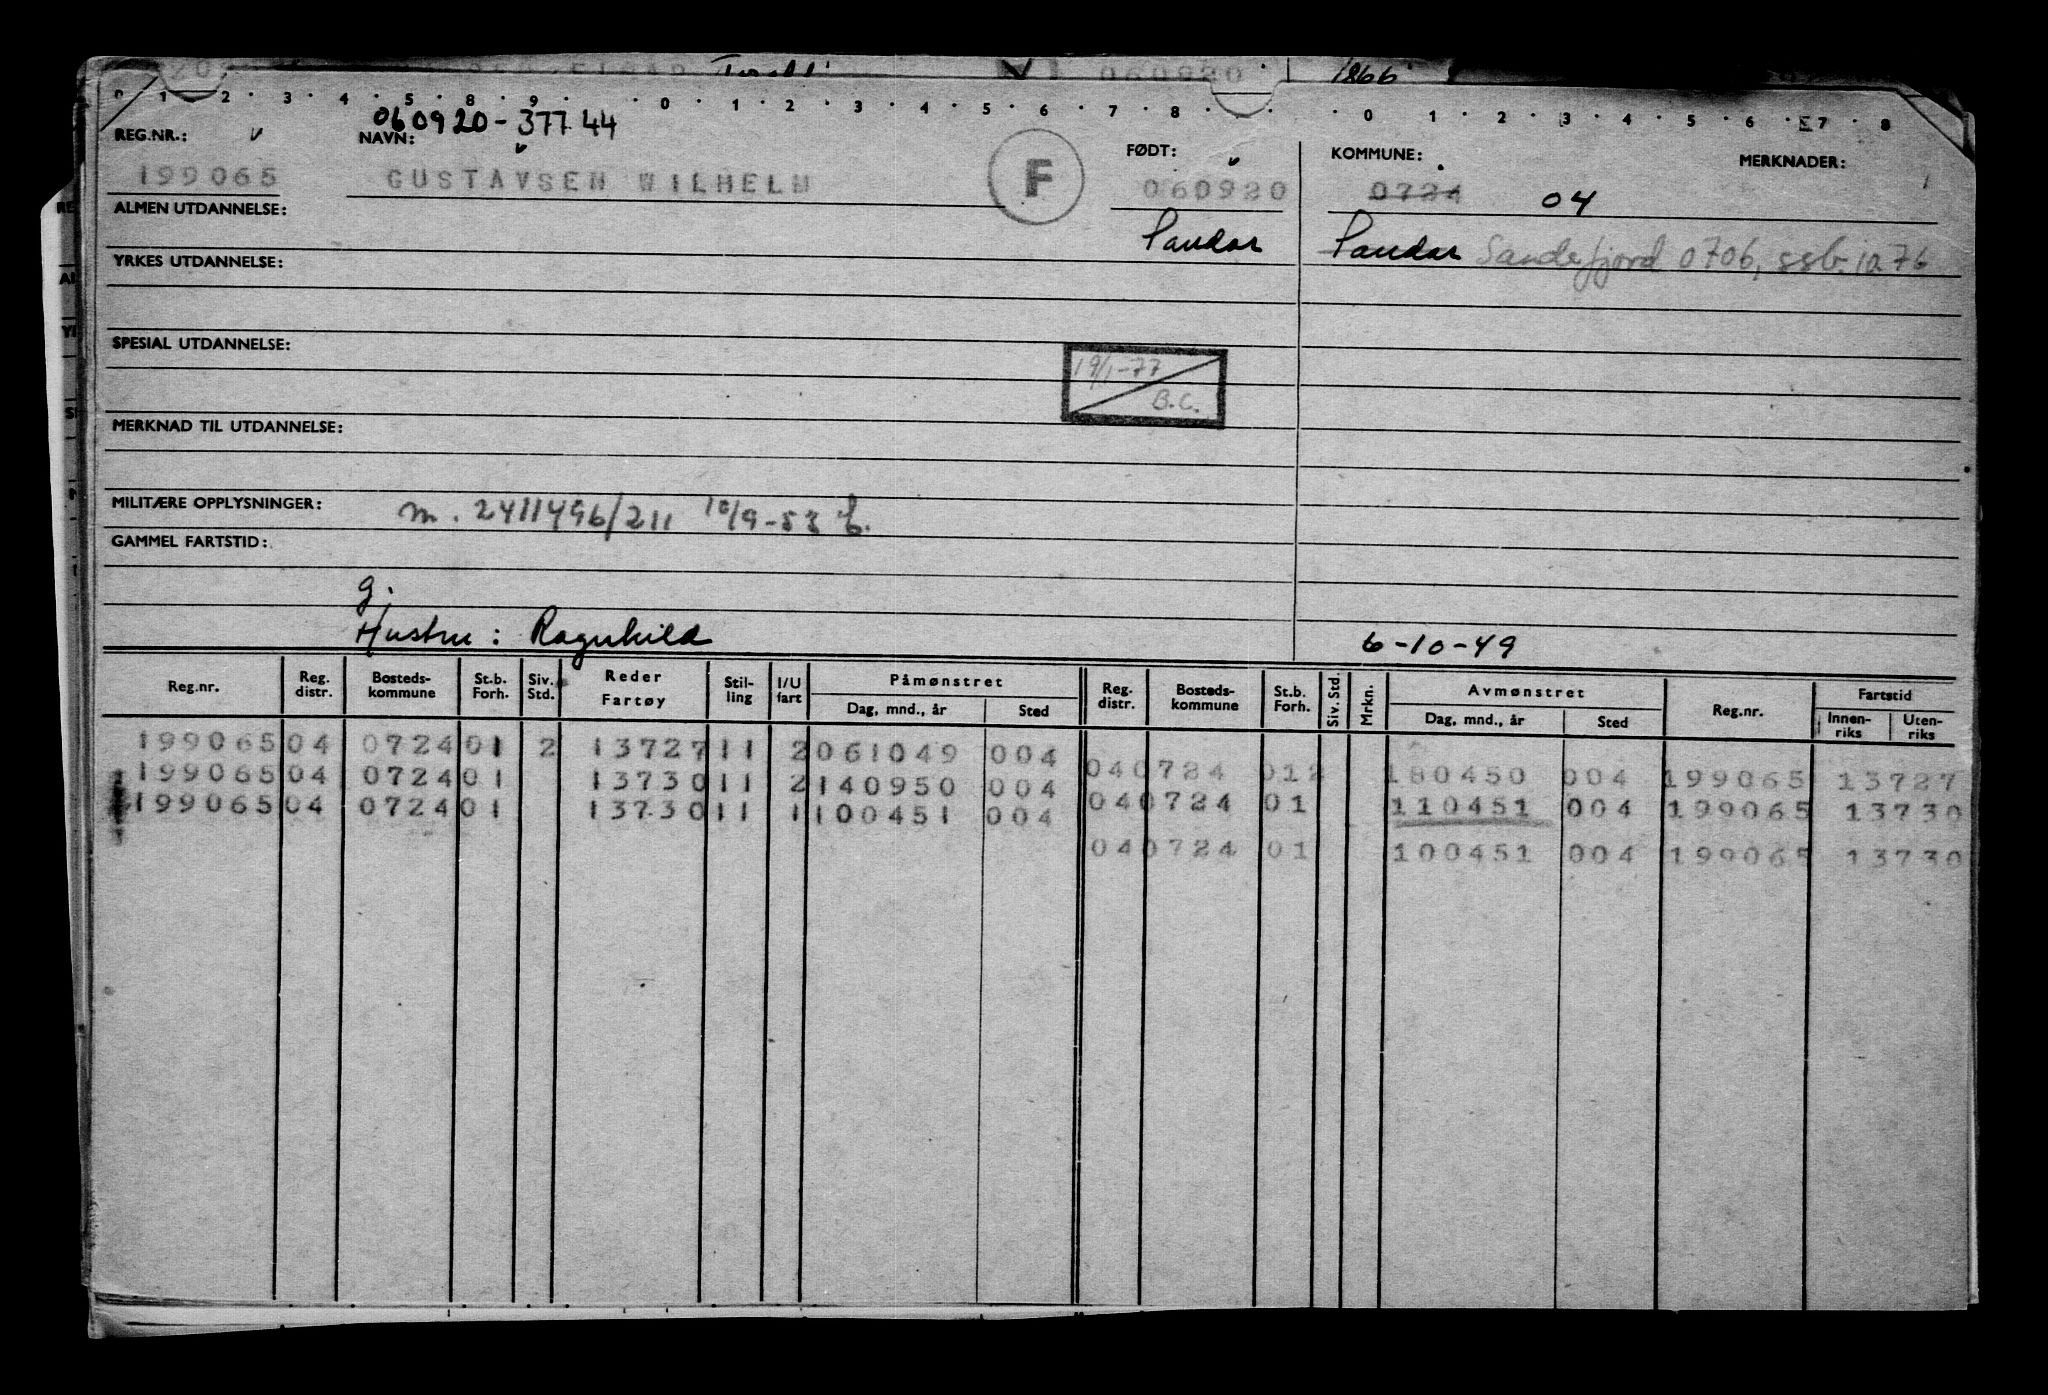 060920 1866
0 1 2 3 4 5 8 9 0 1 2 3 4 5 6 7 8 0 1 2 3 4 5 6 7 8
060920-37744
REG.NR.: NAVN: FØDT: KOMMUNE: MERKNADER:
199065 GUSTAVSEN WILHELM F 060920 0724 04
ALMEN UTDANNELSE: Sandar Sandar Sandefjord 0706, ssb. 10 76
YRKES UTDANNELSE:
SPESIAL UTDANNELSE:
19/1-77
B.C.
MERKNAD TIL UTDANNELSE:
MILITÆRE OPPLYSNINGER: m. 2411496/211 10/9-53
GAMMEL FARTSTID:
g.
Hustru: Ragnhild 6-10-49
Reg.nr. Reg. distr. Bosteds-kommune St.b. Forh. Siv. Std. Reder Fartøy Stil-ling I/U fart Påmønstret Dag, mnd., år Sted Reg. distr. Bosteds-kommune St.b. Forh. Siv. Std. Mrkn. Avmønstret Dag, mnd., år Sted Reg.nr. Fartstid Innen-riks Uten-riks
199065 04 0724 01 2 13727 11 2 061049 004 04 0724 01 2 180450 004 199065 13727
199065 04 0724 01 13730 11 2 140950 004 04 0724 01 110451 004 199065 13730
199065 04 0724 01 13730 11 1 100451 004
04 0724 01 100451 004 199065 13730